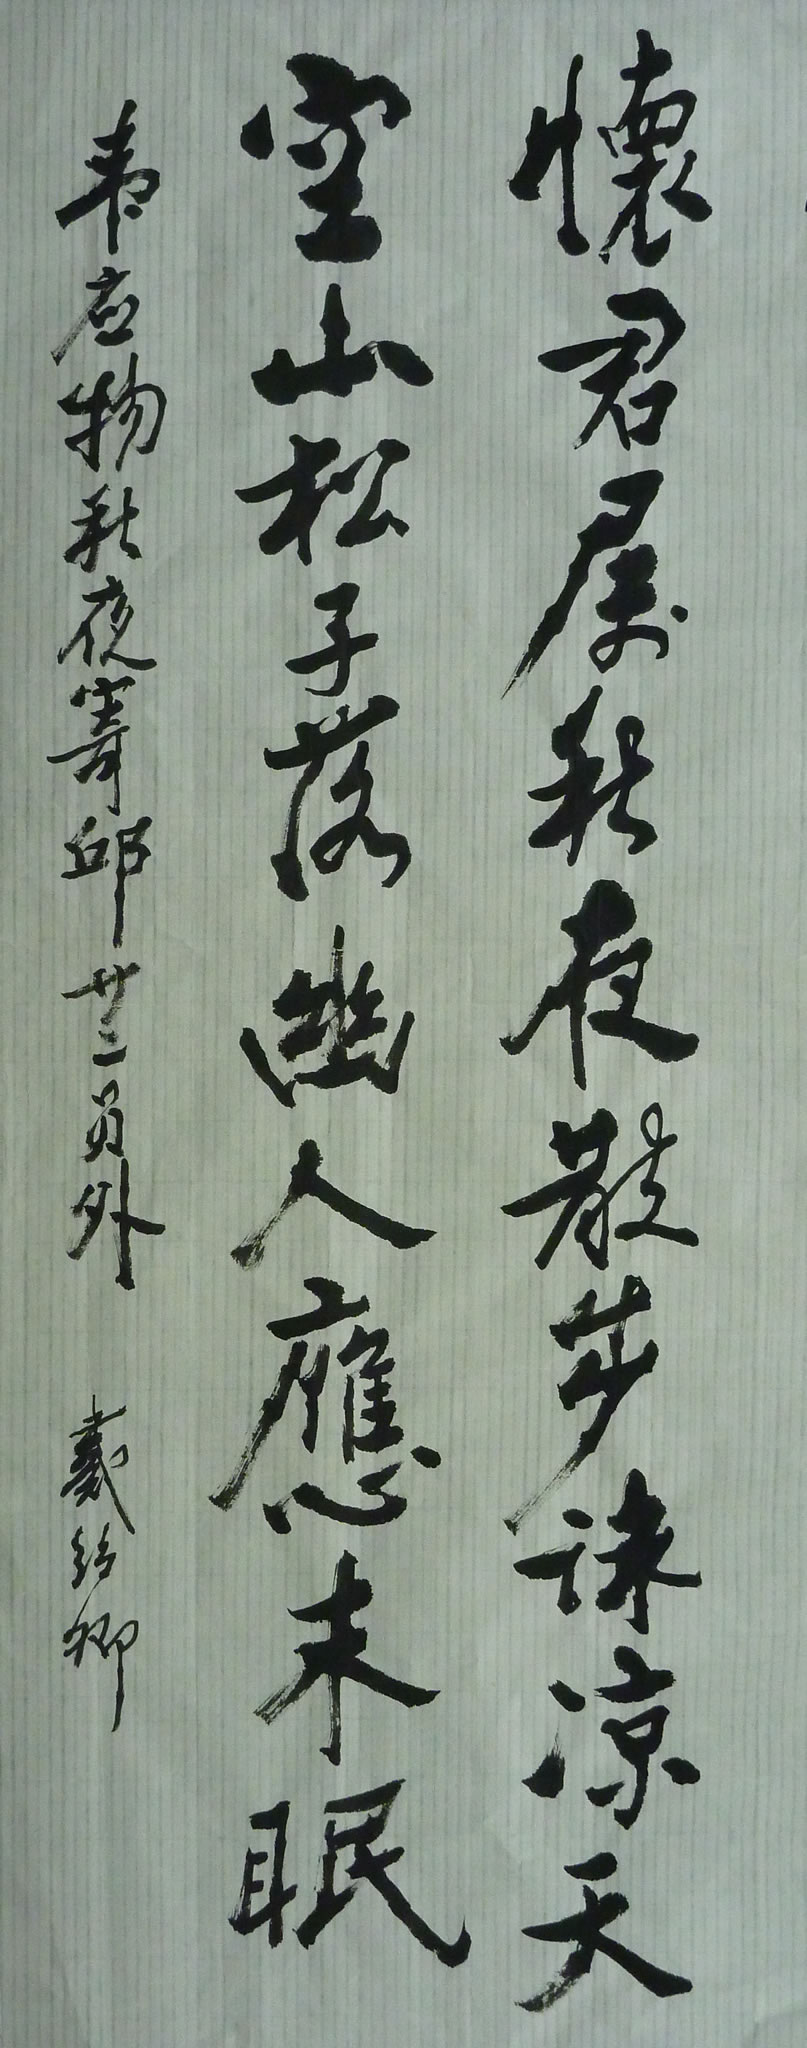 懷君屬秋夜散步詠凉天
空山松子落幽人應未眠
韦应物秋夜寄邱廿二員外 戴 卿